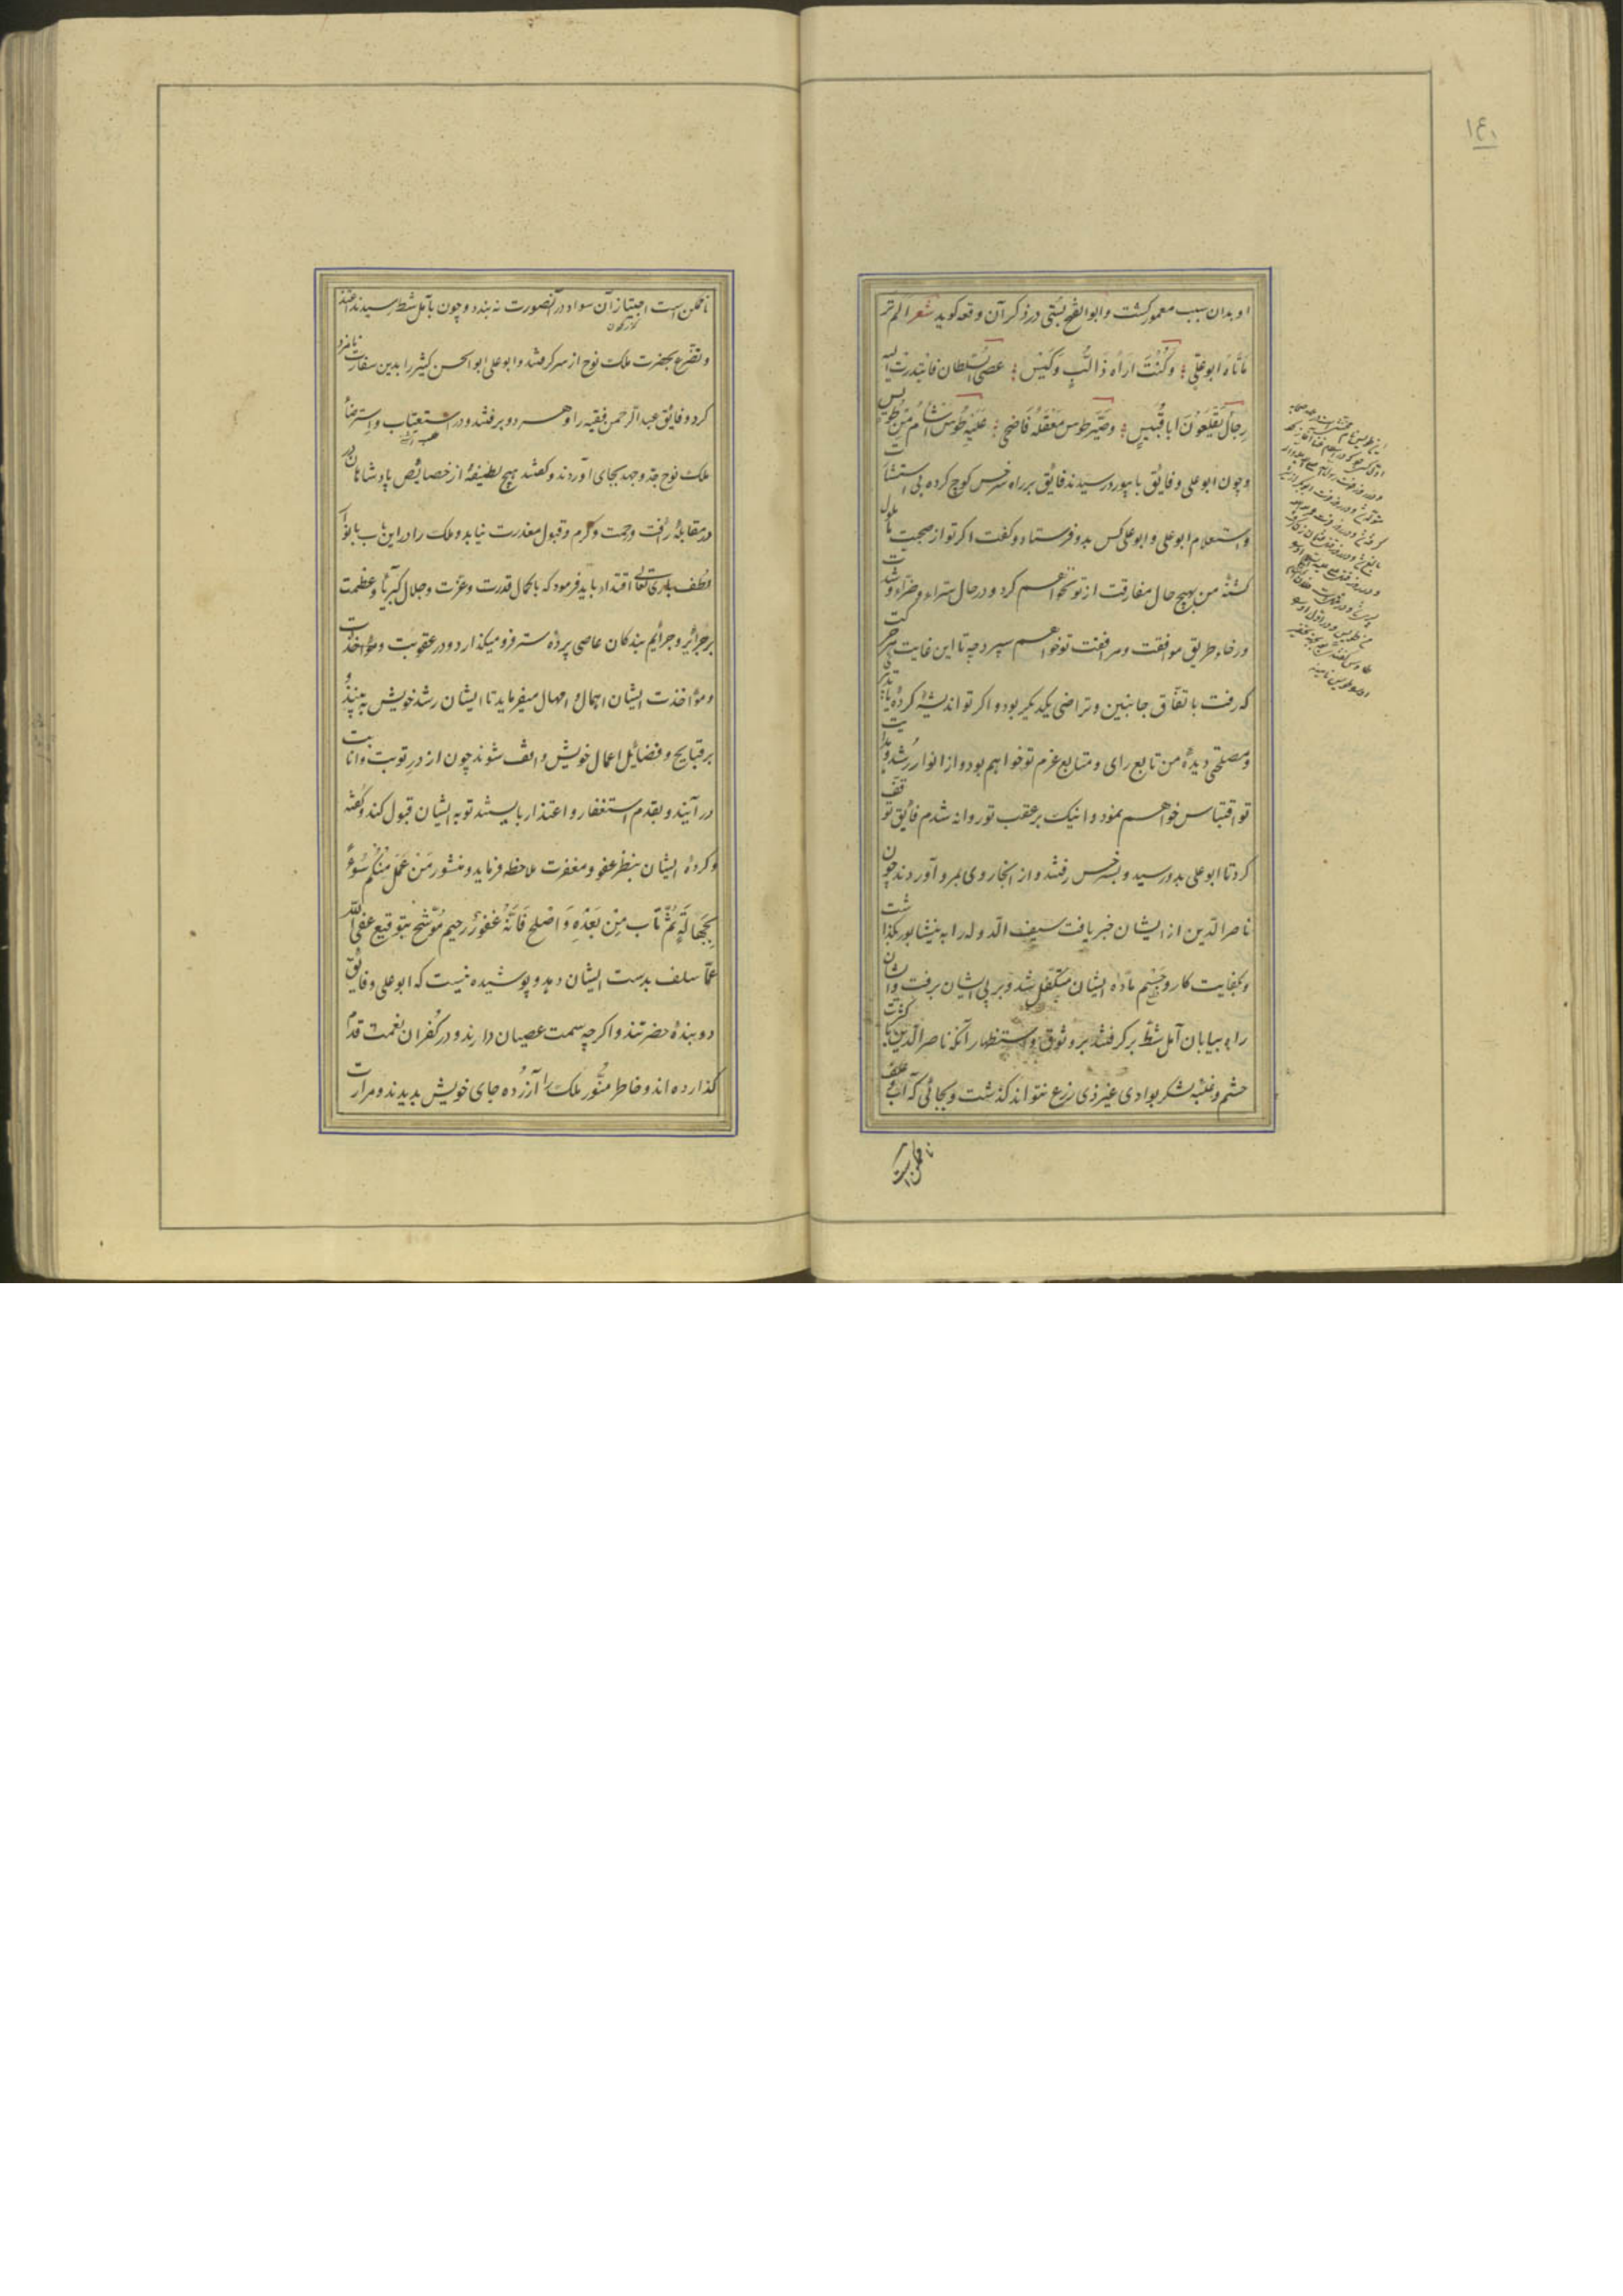 ۱۴۰
او بدان سبب معمور کشت و ابوالفتح بستی در ذکر آن وقعه کوید شعر الم تر
مَااَتَاهُ ابوعَلِیٍّ وَکُنْتُ ارَاهُ ذَا لُبٍّ وَکَیْسٍ عصی السُّلطان فابتدرت الیه
رِجالٌ یَقْلَعُونَ اباقُبَیسٍ وصَیَّر طوس مَعْقَلَهُ فَاضحی عَلَیْهِ طُوسُ اشْأمَ مِنْ طُوَیس
وچون ابوعلی و فایق بابیورد رسیدند فایق بر راه سرخس کوچ کرده بی استشارت
و استعلام ابوعلی و ابوعلی کس بدو فرستاد و کفت اکر تو از صحبت ما ملول
کشتهٔ من بهیچ حال مفارقت از تو نخواهم کرد و در حال سرّاء و ضرّاء و شدت
ورخاء طریق موافقت و مرافقت تو خواهم سپرد چه تا این غایت هر حرکت
که رفت باتفاق جانبین و تراضی یکدیکر بود و اکر تو اندیشهٔ کردهٔ یا تدبیری
و مصلحتی دیدهٔ من تابع رای و متابع عزم تو خواهم بود و از انوار رُشد و هدایت
تو اقتباس خواهم نمود و اینک بر عقب تو روانه شدم فایق توقف
کرد تا ابوعلی بدو رسید و بسرخس رفتند و از انجا روی بمرو آوردند چون
ناصرالدین از ایشان خبر یافت سیف الدوله را به نیشابور بکذاشت
و بکفایت کار و حَسْم مادّه ایشان متکفل شد و بر پی ایشان برفت و ایشان
راه بیابان آمل شطّ برکرفتند بر وثوق و استظهار آنکه ناصرالدین با کثرت
حشم و غلبهٔ لشکر بوادی غیر ذی زرع نتواند کذشت و بجائی که آب و علف
ناممکن است
ناممکن است اجتیاز آن سواد در آنصورت نه بندد و چون بآمل شط رسیدند اعتذار
و تضرّع بحضرت ملک نوح از سر کرفتند و ابوعلی ابوالحسن کثیر را بدین سفارت نامزد
کرد و فایق عبدالرحمن فقیه را و هر دو برفتند و در استعتاب و استرضاء
ملک نوح جدّ و جهد بجای آوردند و کفتند هیچ لطیفهٔ از خصایص پادشاهان
در مقابلهٔ رافت و رحمت و کرم و قبول معذرت نیاید و ملک را در این باب بانواع
لطف باری تعالی اقتداء باید فرمود که با کمال قدرت و عزّت و جلال کبریا و عظمت
بر جرائر و جرائم بندکان عاصی پردهٔ ستر فرو میکذارد و در عقوبت و مؤاخذت
و مؤاخذت ایشان اهمال و امهال میفرماید تا ایشان رشد خویش به بینند و
بر قبایح و فضایل اعمال خویش واقف شوند چون از در توبت و انابت
در آیند و بقدم استغفار و اعتذار بایستند توبه ایشان قبول کند و کفته
و کردهٔ ایشان بنظر عفو و مغفرت ملاحظه فرماید و منشور مَنْ عَمِلَ مِنْکُم سُوءً
بِجَهالَةٍ ثُمَّ تاب مِنْ بَعْدِهِ وَ اصْلَحَ فَانَّهُ غفورٌ رحیم مُوَشّح بتوقیع عفی الله
عمّا سلف بدست ایشان دهد و پوشیده نیست که ابوعلی و فایق
دو بندهٔ حضرتند و اکرچه سمت عصیان دارند و در کفران نعمت قدم
کذارده اند و خاطر منوّر ملک را آزرده جای خویش بدیدند و مرارت